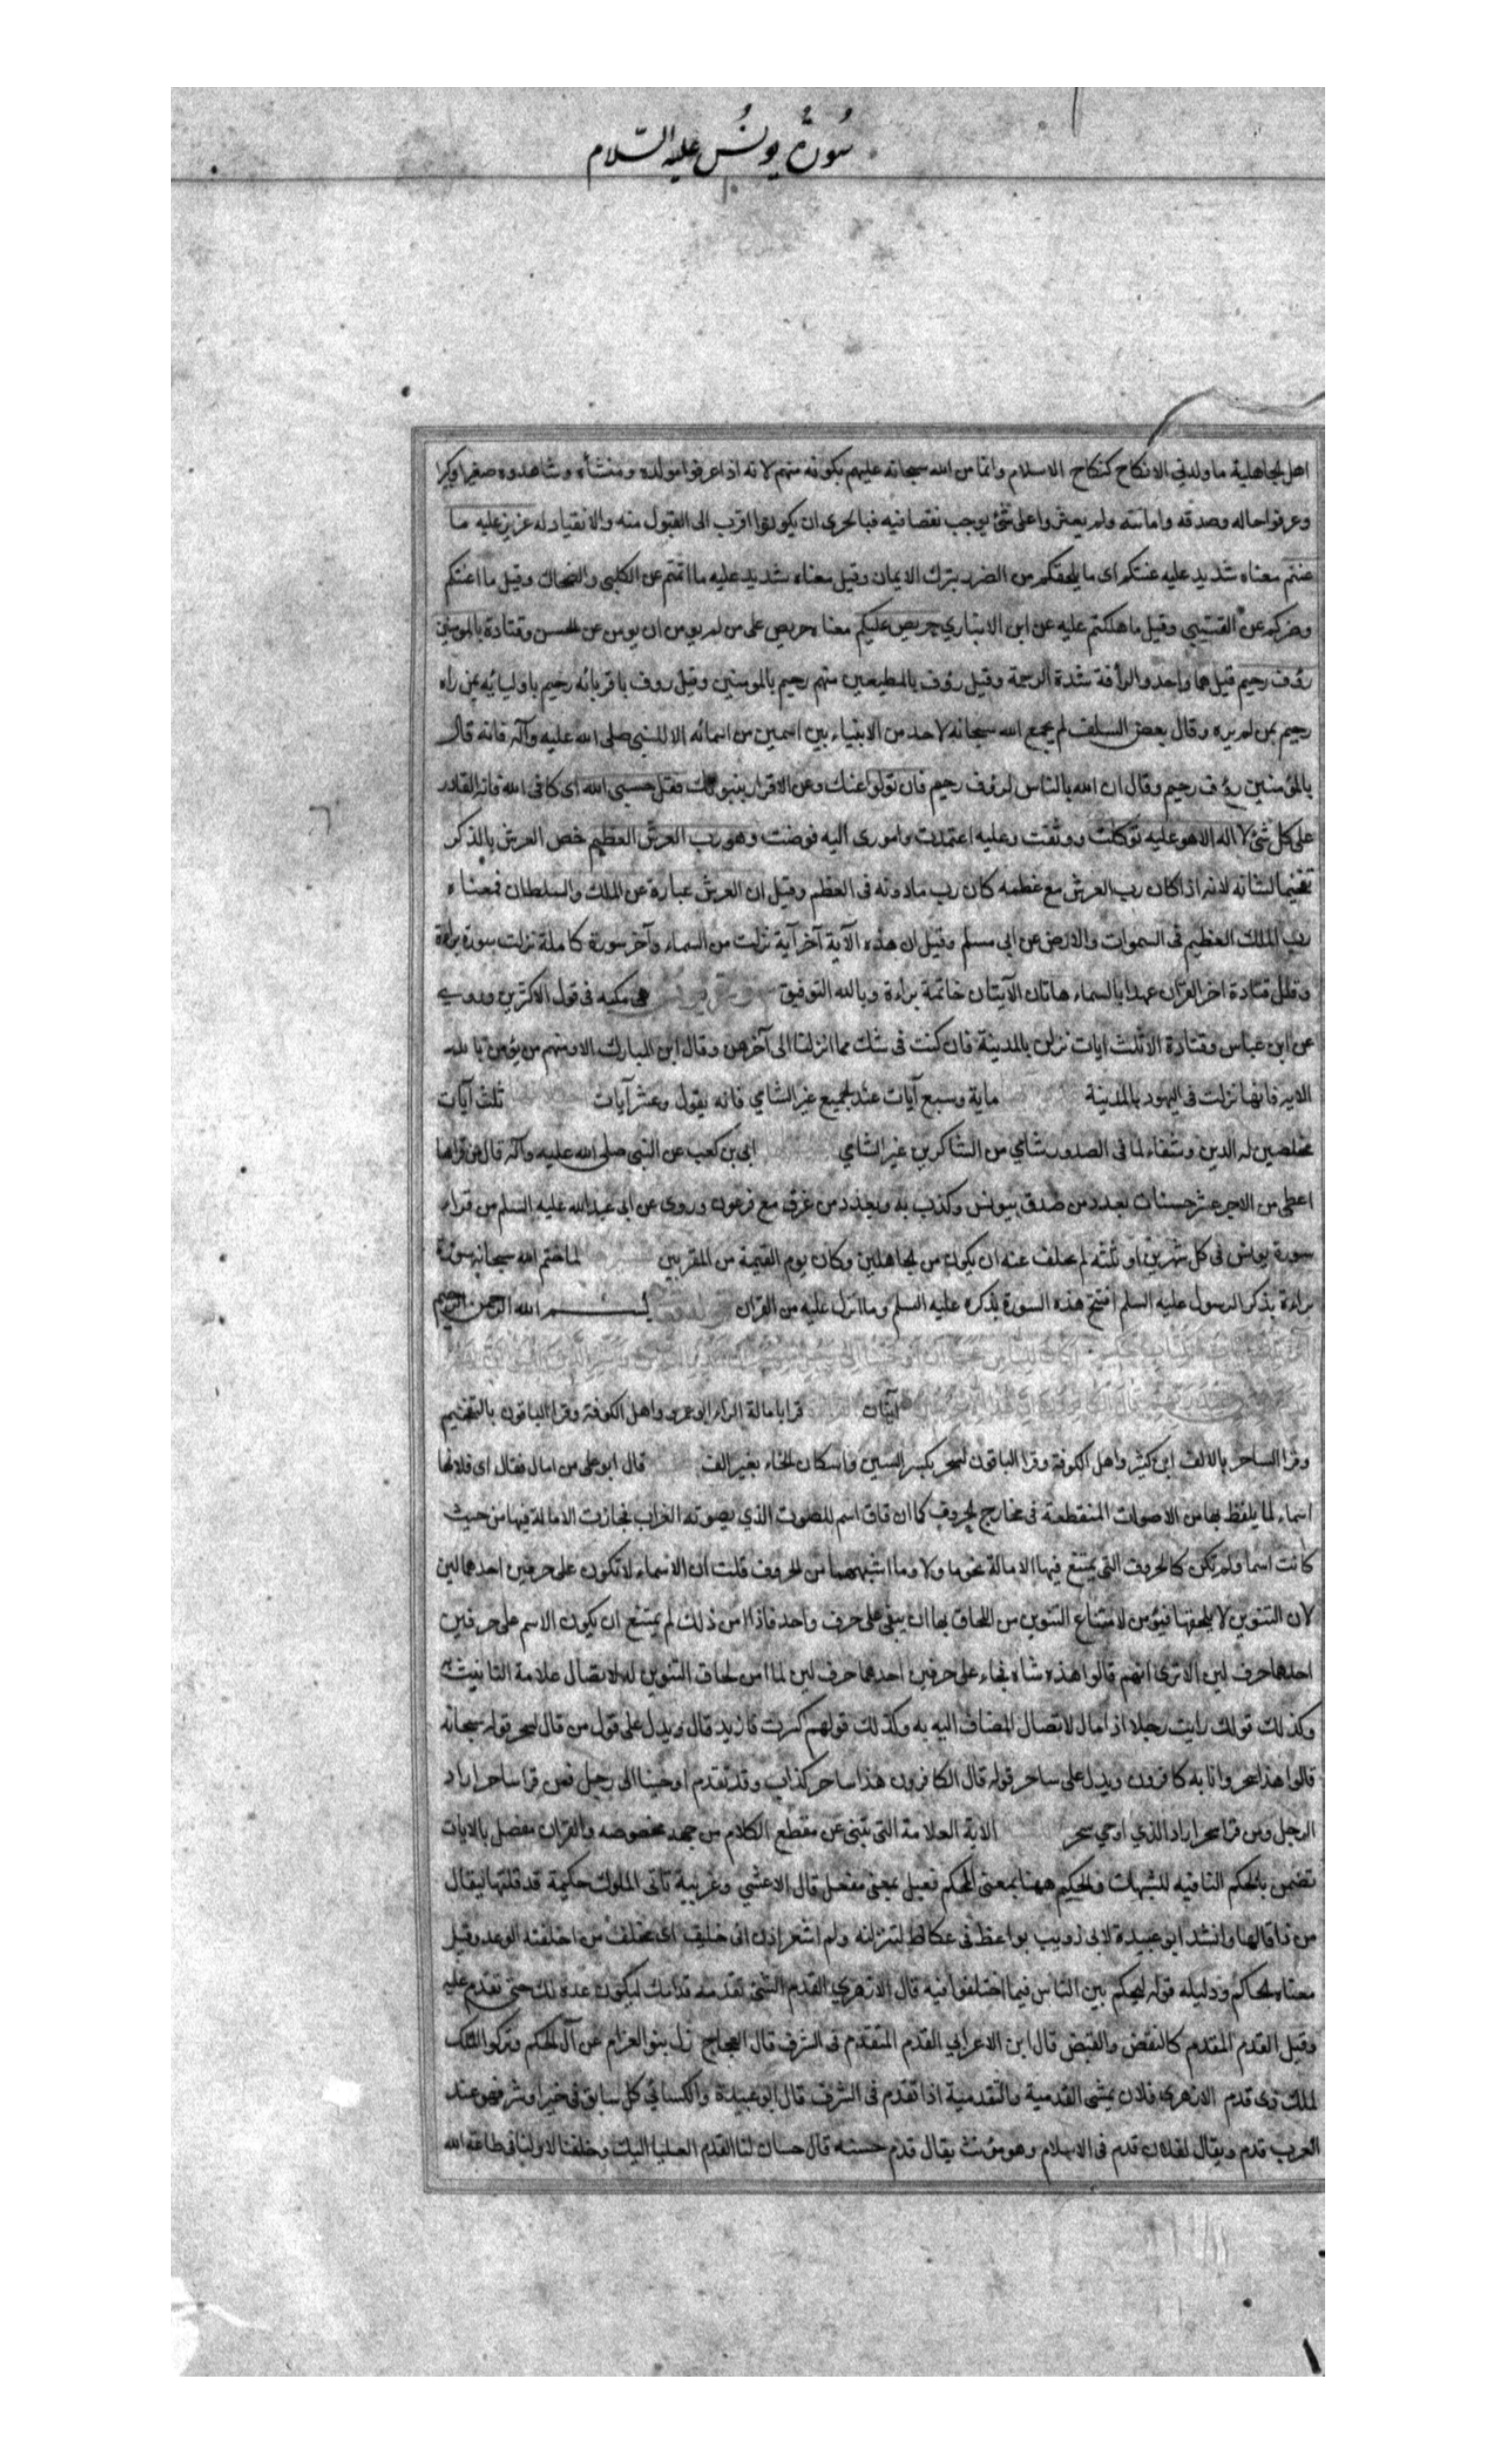 سورة يونس عليه السلام
اهل الجاهلية ما ولدني الا نكاح كنكاح الاسلام وانما من الله سبحانه عليهم بكونه منهم لانه اذا عرفوا مولده ومنشأه وشاهدوه صغيرا وكبيرا
وعرفوا حاله وصدقه وامانته ولم يعثروا على شئ يوجب نقصا فيه فبالحرى ان يكونوا اقرب الى القبول منه والانقياد له عزيز عليه ما
عنتم معناه شديد عليه عنتكم اى ما يلحقكم من الضرر بترك الايمان وقيل معناه شديد عليه ما اثمتم عن الكلبي والضحاك وقيل ما اعنتكم
وضركم عن القتيبي وقيل ما هلكتم عليه عن ابن الانباري حريص عليكم معناه حريص على من لم يومن ان يومن عن الحسن وقتادة بالمومنين
رؤف رحيم قيل هما واحد والرأفة شدة الرحمة وقيل رؤف بالمطيعين منهم رحيم بالمومنين وقيل روف باقربائه رحيم باوليائه بمن راه
رحيم بمن لم يره وقال بعض السلف لم يجمع الله سبحانه لاحد من الانبياء بين اسمين من اسمائه الا للنبي صلى الله عليه وآله فانه قال
بالمؤمنين رؤف رحيم وقال ان الله بالناس لرؤف رحيم فان تولوا عنك وعن الاقرار بنبوتك فقل حسبي الله اى كافى الله فانه القادر
على كل شئ لا اله الا هو عليه توكلت ووثقت وعليه اعتمدت وامورى اليه فوضت وهو رب العرش العظيم خص العرش بالذكر
تفخيما لشانه لانه اذا كان رب العرش مع عظمه كان رب ما دونه فى العظم وقيل ان العرش عبارة عن الملك والسلطان فمعناه
رب الملك العظيم فى السموات والارض عن ابي مسلم وقيل ان هذه الآية آخر آية نزلت من السماء وآخر سورة كاملة نزلت سورة براءة
وقال قتادة اخر القران عهدا بالسماء هاتان الآيتان خاتمة براءة وبالله التوفيق هى مكيه فى قول الاكثرين وروى
عن ابن عباس وقتادة الا ثلث ايات نزلن بالمدينة فان كنت فى شك مما انزلنا الى آخرهن وقال ابن المبارك الا ومنهم من يؤمن به
الايه فانها نزلت فى اليهود بالمدينة ماية وسبع آيات عند الجميع غير الشامي فانه يقول وعشر آيات ثلث آيات
مخلصين له الدين وشفاء لما فى الصدور شامي من الشاكرين غير الشامي ابي بن كعب عن النبي صلى الله عليه وآله قال من قراها
اعطى من الاجر عشر حسنات بعدد من صدق بيونس وكذب به وبعدد من غرق مع فرعون وروى عن ابى عبد الله عليه السلم من قراء
سورة يونس فى كل شهرين او ثلثه لم يخف عنه ان يكون من الجاهلين وكان يوم القيمة من المقربين لما ختم الله سبحانه سورة
براءة بذكر الرسول عليه السلم افتتح هذه السورة بذكره عليه السلم وما انزل عليه من القران بسم الله الرحمن الرحيم
آيتان قرا بامالة الراء ابو عمرو واهل الكوفة وقرا الباقون بالتفخيم
وقرا الساحر بالالف ابن كثير واهل الكوفة وقرا الباقون لسحر بكسر السين واسكان الحاء بغير الف قال ابو على من امال فقال اى فلانها
اسماء لما يلفظ بها من الاصوات المتقطعة فى مخارج الحروف كما ان قاق اسم للصوت الذي يصوته الغراب فجازت الامالة فيها من حيث
كانت اسما ولم تكن كالحروف التى يمتنع فيها الامالة نحو ما ولا وما اشبههما من الحروف قلت ان الاسماء لا تكون على حرفين احدهما لين
لان التنوين لا يلحقها فيؤمن لامتناع التنوين من اللحاق بها ان يبقى على حرف واحد فاذا امن ذلك لم يمتنع ان يكون الاسم على حرفين
احدهما حرف لين الا ترى انهم قالوا هذه شاه فجاء على حرفين احدهما حرف لين لما امن لحاق التنوين له لاتصال علامة التانيث
وكذلك قولك رايت رجلا ذا مال لاتصال المضاف اليه به وكذلك قولهم كسرت فا زيد قال ويدل على قول من قال لسحر قوله سبحانه
قالوا هذا سحر وانا به كافرون ويدل على ساحر قوله قال الكافرون هذا ساحر كذاب وقد تقدم اوحينا الى رجل فمن قرا ساحر اراد
الرجل ومن قرا سحر اراد الذي اوحي سحر الاية العلامة التى تنبئ عن مقطع الكلام من جهه مخصوصه والقران مفصل بالايات
تضمن بالحكم النافيه للشبهات والحكيم ههنا بمعنى المحكم فعيل بمعنى مفعل قال الاعشي وغريبة تاتى الملوك حكيمة قد قلتها ليقال
من ذا قالها وانشد ابو عبيدة لابى ذويب يواعظ فى عكاظ لننزلنه ولم اشعر اذن انى خليف اى مخلف من اخلفته الوعد وقيل
معناه الحاكم ودليله قوله ليحكم بين الناس فيما اختلفوا فيه قال الازهري القدم الشئ تقدمه قدامك ليكون عدة لك حتى تقدم عليه
وقيل القدم المقدم كالنقض والقبض قال ابن الاعرابي القدم المتقدم فى الشرف قال العجاج زل بنو العوام عن آل الحكم وتركوا الملك
لملك ذى قدم الازهرى فلان يمشى القدمية والتقدمية اذا تقدم فى الشرف قال ابو عبيدة والكسائي كل سابق فى خير او شر فهو عند
العرب قدم ويقال لفلان قدم فى الاسلام وهو مؤنث يقال قدم حسنه قال حسان لنا القدم العليا اليك وخلفنا لاولنا فى طاعة الله